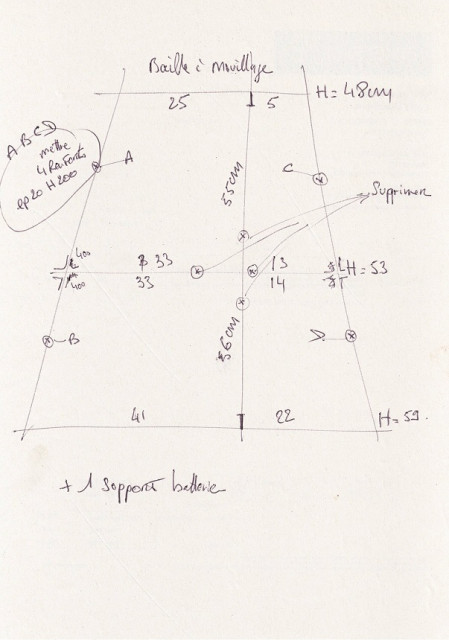 Baille à Mouillage
25
5
H = 48cm
A B C D
mettre
4 Renforts
ep 20 H 200
A
C
55cm
Supprimer
400
400
33
33
13
14
H = 53
56cm
B
D
41
22
H = 59.
+ 1 support batterie